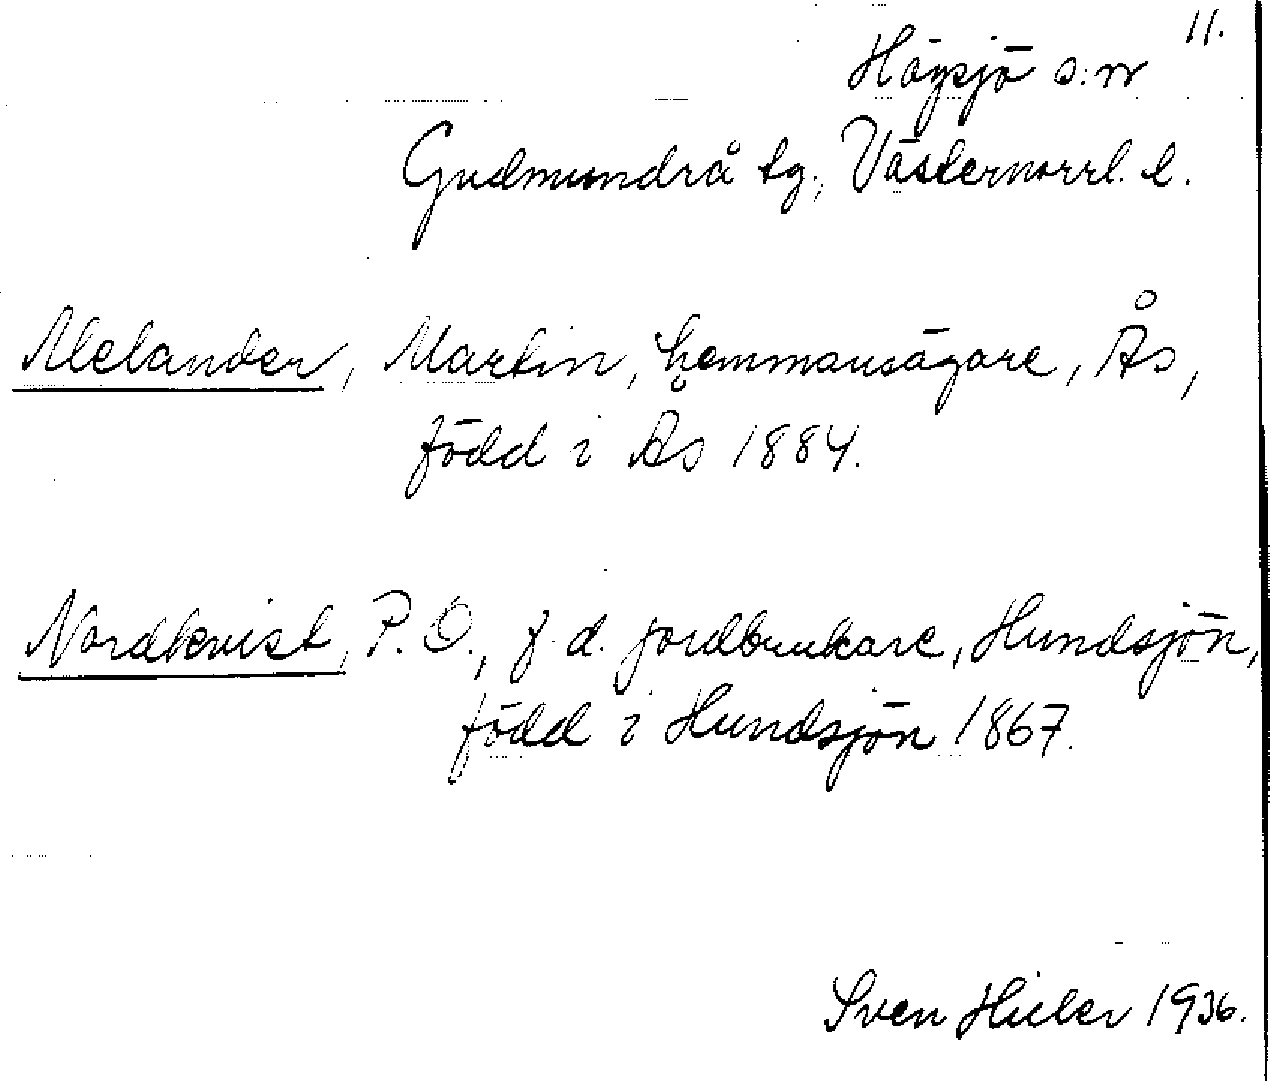 11.
Högsjö s:n
Gudmundrå tg., Västernorrl. l.
Melander, Martin, hemmansägare, Ås,
född i Ås 1884.
Nordkvist, P. O., f. d. jordbrukare, Hundsjön,
född i Hundsjön 1867.
Sven Hieler 1936.